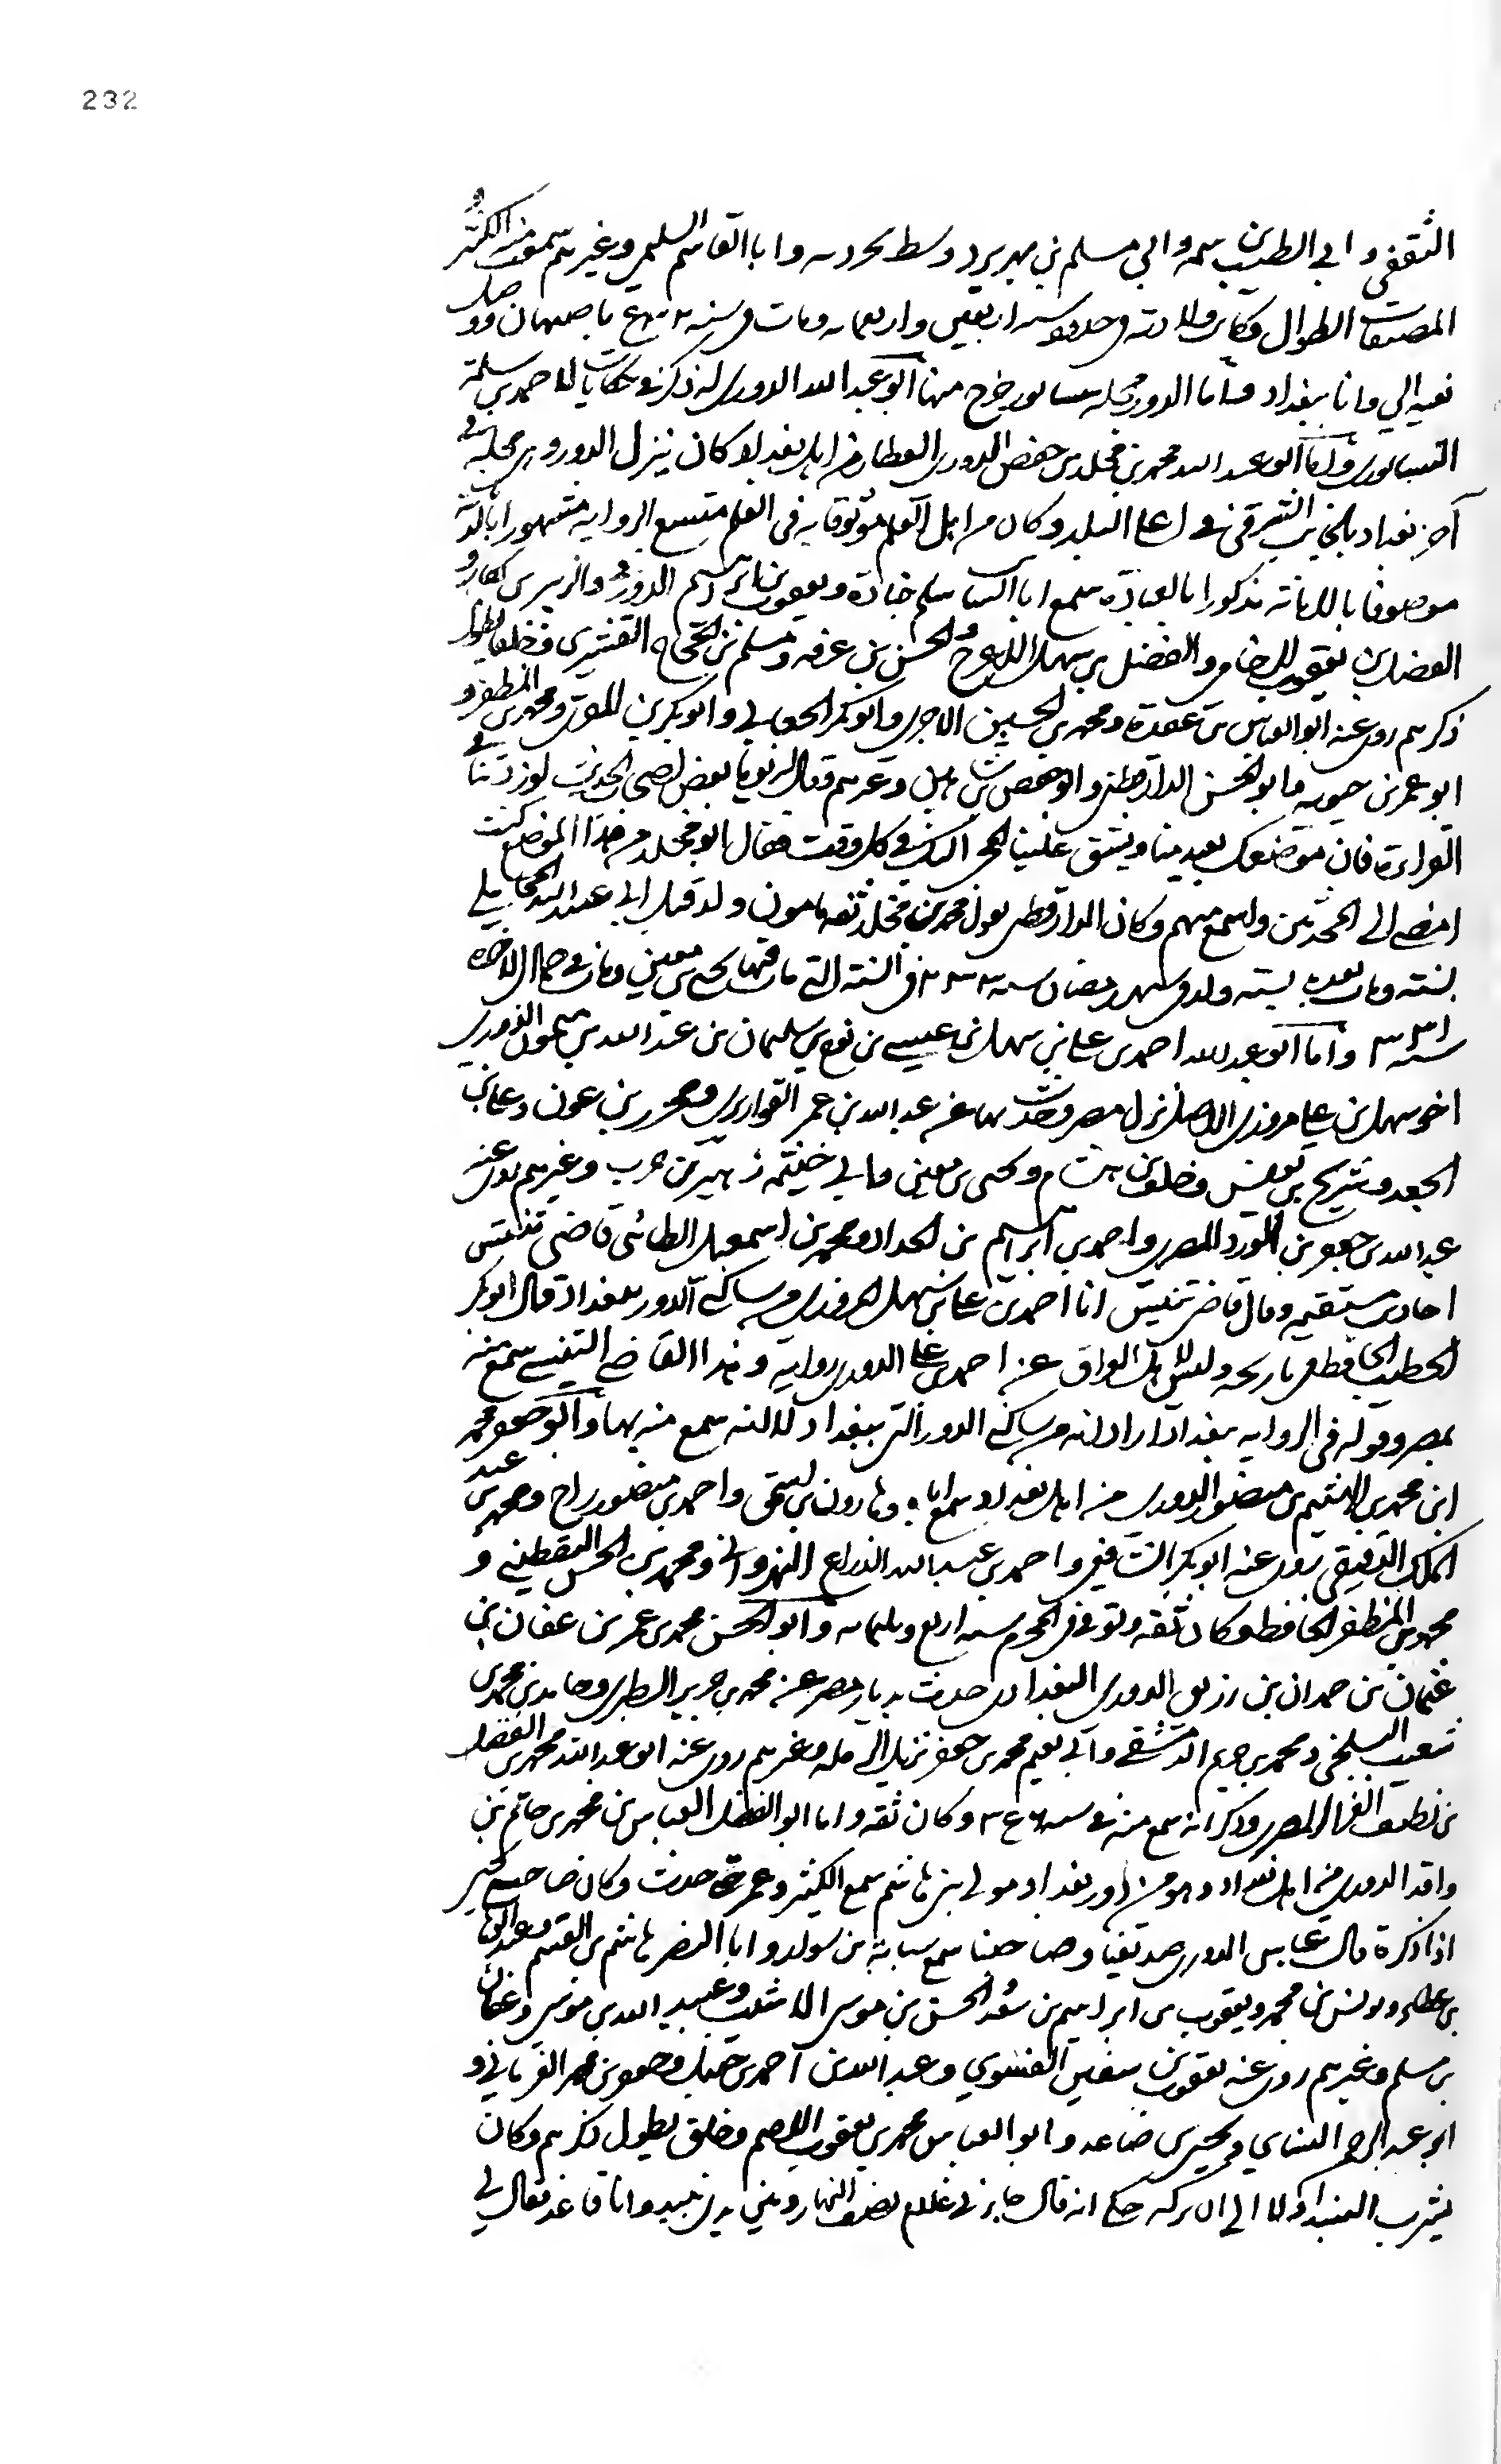 232
الثقفي و ابي الطيب بن سمه وابي مسلم بن مهريزد وسط بحرده وابا القاسم السلمي وغيرهم سمعت منه الكثير
المصنفات الطوال وكانت ولادته في حدود سنه اربعين واربعمايه ومات في سنه باصبهان ووصل
نعيه الي وانا ببغداد واما الدور محله بنيسابور خرج منها ابو عبد الله الدوري له ذكر في حكايات لاحمد بن سلمة
النيسابوري واما ابو عبد الله محمد بن مخلد بن حفص الدوري العطار من اهل بغداد كان ينزل الدور وهي محلة في
آخر بغداد بالجانب الشرقي في اعلى البلد وكان من اهل العلم موثوقا به في العلم متسع الرواية مشهورا بالديانة
موصوفا بالامانة مذكورا بالعبادة سمع ابا السائب سلم بن جنادة ويعقوب بن ابراهيم الدورقي والزبير بن بكار و
الفضل بن يعقوب الرخامي والفضل بن سهل الاعرج والحسن بن عرفه ومسلم بن الحجاج القشيري وخلقا يطول
ذكرهم روى عنه ابو العباس بن عقدة ومحمد بن الحسين الاجري وابو بكر الجعابي وابو بكر بن المقري ومحمد بن المظفر و
ابو عمر بن حيويه وابو الحسن الدارقطني وابو حفص بن شاهين وغيرهم وقال له يوما بعض اصحاب الحديث لو زدتنا في
القراءة فان موضعك بعيد منا ويشق علينا المجي اليك في كل وقت فقال ابو مخلد من هذا الموضع كنت
امضي الى المحدثين واسمع منهم وكان الدارقطني يقول محمد بن مخلد ثقه مامون ولد قبل ابي عبد الله المحاملي
بسنته ومات بعده بسنه ولد في شهر رمضان سنه ٢٣٣ في السنة التي مات فيها يحيى بن معين ومات في جمادى الاخره
سنه ٣٣١ واما ابو عبد الله احمد بن علي بن سهل بن عيسى بن نوح بن سليمان بن عبد الله بن ميمون الدوري
اخو سهل بن علي مروزي الاصل نزل مصر وحدث بها عن عبد الله بن عمر القواريري ومحرز بن عون وعلي بن
الجعد وشريح بن يونس وخلف بن هشام ويحيى بن معين وابي خيثمه زهير بن حرب وغيرهم روى عنه
عبد الله بن جعفر بن الورد المصري واحمد بن ابراهيم بن الحداد ومحمد بن اسمعيل الطائي قاضي تنيس
احاديث مستقيمه وقال قاضي تنيس انا احمد بن علي بن سهل المروزي من ساكني الدور ببغداد قال ابو بكر
الخطيب الحافظ في تاريخه وليس لاهل العراق عن احمد بن علي الدوري رواية وهذا القاضي التنيسي سمع منه
بمصر وقوله في الروايه ببغداد اراد انه من ساكني الدور التي ببغداد لا انه سمع منه بها وابو جعفر محمد
ابن محمد بن الهيثم بن منصور الدوري من اهل بغداد سمع اباه وهارون بن اسحق واحمد بن منصور زاج ومحمد بن عبد
الملك الدقيقي روى عنه ابو بكر الشافعي واحمد بن عبد الله الذراع النهرواني ومحمد بن الحسن اليقطيني و
محمد بن المظفر الحافظ وكان ثقه وتوفي في المحرم سنه اربع وثلثمايه وابو الحسن محمد بن عمر بن عفان بن
عثمان بن حمدان بن رزيق الدوري البغدادي حدث بديار مصر عن محمد بن جرير الطبري وحامد بن محمد بن
شعيب البلخي ومحمد بن خريم الدمشقي وابي نعيم محمد بن جعفر نزيل الرمله وغيرهم روى عنه ابو عبد الله محمد بن الفضل
بن نظيف الفراء المصري وذكر انه سمع منه في سنه وكان ثقه واما ابو الفضل العباس بن محمد بن حاتم بن
واقد الدوري من اهل بغداد وهو من دور بغداد مولى بني هاشم سمع الكثير وعمر حتى حدث وكان يحيى بن معين
اذا ذكره قال عباس الدوري صديقنا وصاحبنا سمع شبابة بن سوار وابا النضر هاشم بن القسم وعبد الوهاب
بن عطاء ويونس بن محمد ويعقوب بن ابراهيم بن سعد والحسن بن موسى الاشيب وعبيد الله بن موسى وعفان
بن مسلم وغيرهم روى عنه يعقوب بن سفين الفسوي وعبد الله بن احمد بن حنبل وجعفر بن محمد الفريابي و
ابو عبد الرحمن النسائي ويحيى بن صاعد وابو العباس محمد بن يعقوب الاصم وخلق يطول ذكرهم وكان
يشرب النبيذ الى ان تركه حكى انه قال جازني غلام نصف النهار وبين يدي نبيذ وانا قاعد فقال لي